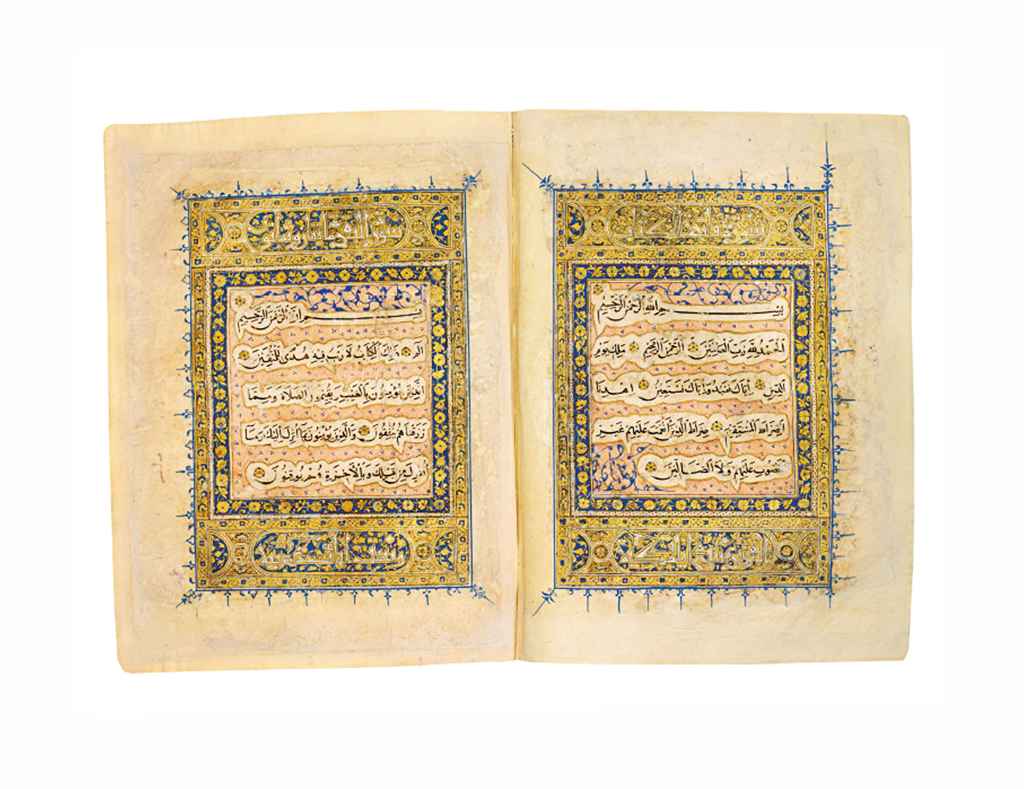 سورة فاتحة الكتاب
بسم الله الرحمن الرحيم
الحمد لله رب العالمين الرحمن الرحيم ملك يوم
الدين اياك نعبد واياك نستعين اهدنا
الصراط المستقيم صراط الذين انعمت عليهم غير
المغضوب عليهم ولا الضالين
بسم الله الرحمن الرحيم
الم ذلك الكتاب لا ريب فيه هدى للمتقين
الذين يؤمنون بالغيب ويقيمون الصلاة ومما
رزقناهم ينفقون والذين يؤمنون بما انزل اليك وما
انزل من قبلك وبالاخرة هم يوقنون